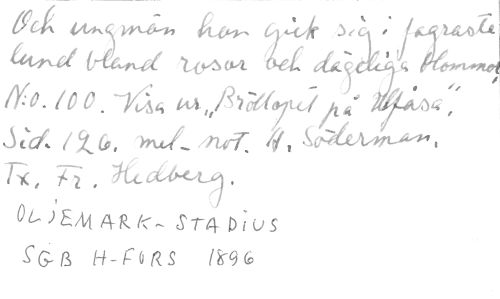 Och ungmön hon gick sig i fagraste
lund bland rosor och dägeliga blommor
N:o. 100. Visa ur „Bröllopet på Ulfåsa".
Sid. 126. mel-not. A. Söderman.
Tx. Fr. Hedberg.
OLJEMARK-STADIUS
SGB H-FORS 1896